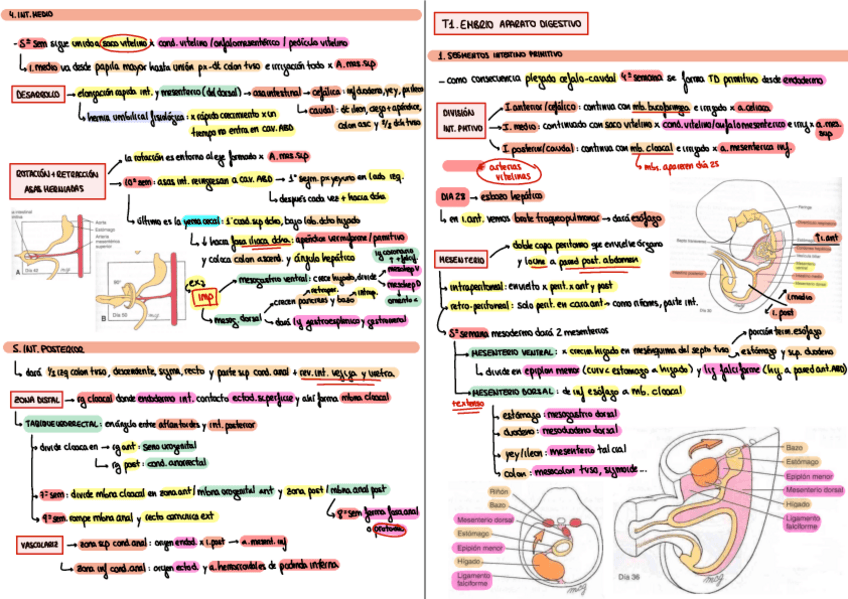 4. INT. MEDIO
- 5ª sem sigue unido a saco vitelino x cond. vitelino / onfalomesentérico / pedículo vitelino
I. medio va desde papila mayor hasta unión px-dt colon tvso e irrigación todo x A. mes. sup
DESARROLLO → elongación rápida int. y mesenterio (del dorsal) → asa intestinal → cefálica: ID, duodeno, yey, px íleon
caudal: dt íleon, ciego + apéndice, colon asc y ⅔ dt tvso
hernia umbilical fisiológica: x rápido crecimiento x un tiempo no entra en cav. ABD
ROTACIÓN + RETRACCIÓN ASAS HERNIADAS
la rotación es entorno al eje formado x A. mes. sup
10ª sem: asas int. reingresan a cav. ABD → 1º segm. px yeyuno en lado izq.
después cada vez + hacia dcha
último es la yema cecal: 1º cuad. sup dcho, bajo lób. dcho hígado
↓ hacia fosa ilíaca dcha: apéndice vermiforme/primitivo y coloca colon ascend. y ángulo hepático
Aorta
Estómago
Arteria mesentérica superior
A
Día 40
B
90°
Día 50
imp
mesogastrio ventral: crece hígado, divide
mesohep V
mesohep D
omento <
mesog. dorsal
crecen páncreas y bazo
retroper.
intrap.
dará lig gastroesplénico y gastrorrenal
5. INT. POSTERIOR
dará ⅓ izq colon tvso, descendente, sigma, recto y parte sup cond. anal + rev. int. vejiga y uretra.
ZONA DISTAL → rg cloacal donde endodermo int. contacta ectod. superficie y ahí forma mbna cloacal
TABIQUE URORRECTAL: en ángulo entre alantoides y int. posterior
divide cloaca en → rg ant: seno urogenital
rg post: cond. anorrectal
7ª sem: divide mbna cloacal en zona ant / mbna urogenital ant y zona post / mbna anal post
9ª sem rompe mbna anal y recto comunica ext
8ª sem forma fosa anal o proctodeo
VASCULARIZ → zona sup cond. anal: origen endod. x I. post → a. mesent. inf
zona inf cond. anal: origen ectod. y a. hemorroidales de pudenda interna.
T1. EMBRIO APARATO DIGESTIVO
1. SEGMENTOS INTESTINO PRIMITIVO
- como consecuencia plegado cefalo-caudal 4ª semana se forma TD primitivo desde endodermo
DIVISIÓN INT. PMTIVO
I. anterior/cefálico: continua con mb. bucofaríngea e irrigado x a. celiaca
I. medio: continuado con saco vitelino x cond. vitelino/onfalomesentérico e irrig x a. mes. sup
I. posterior/caudal: continua con mb. cloacal e irrigado x a. mesentérica inf.
arterias vitelinas
mbs. aparecen día 25
DIA 28 → esbozo hepático
en I. ant. vemos brote traqueopulmonar → dará esófago
MESENTERIO → doble capa peritoneo que envuelve órgano y lo une a pared post. abdomen
intraperitoneal: envuelto x perit. x ant y post
retro-peritoneal: solo perit. en cara ant → como riñones, parte int.
I. ant
I. medio
I. post
5ª semana mesodermo dará 2 mesenterios
porción term. esófago
MESENTERIO VENTRAL: x crecim. hígado en mesénquima del septo tvso
estómago y sup. duodeno
divide en epiplón menor (curv < estómago a hígado) y lig falciforme (híg a pared ant. ABD)
MESENTERIO DORSAL: de inf esófago a mb. cloacal
estómago: mesogastrio dorsal
duodeno: mesoduodeno dorsal
yey/íleon: mesenterio tal cual
colon: mesocolon tvso, sigmoide...
Riñón
Bazo
Mesenterio dorsal
Estómago
Epiplón menor
Hígado
Ligamento falciforme
Bazo
Estómago
Epiplón menor
Mesenterio dorsal
Hígado
Ligamento falciforme
Día 36